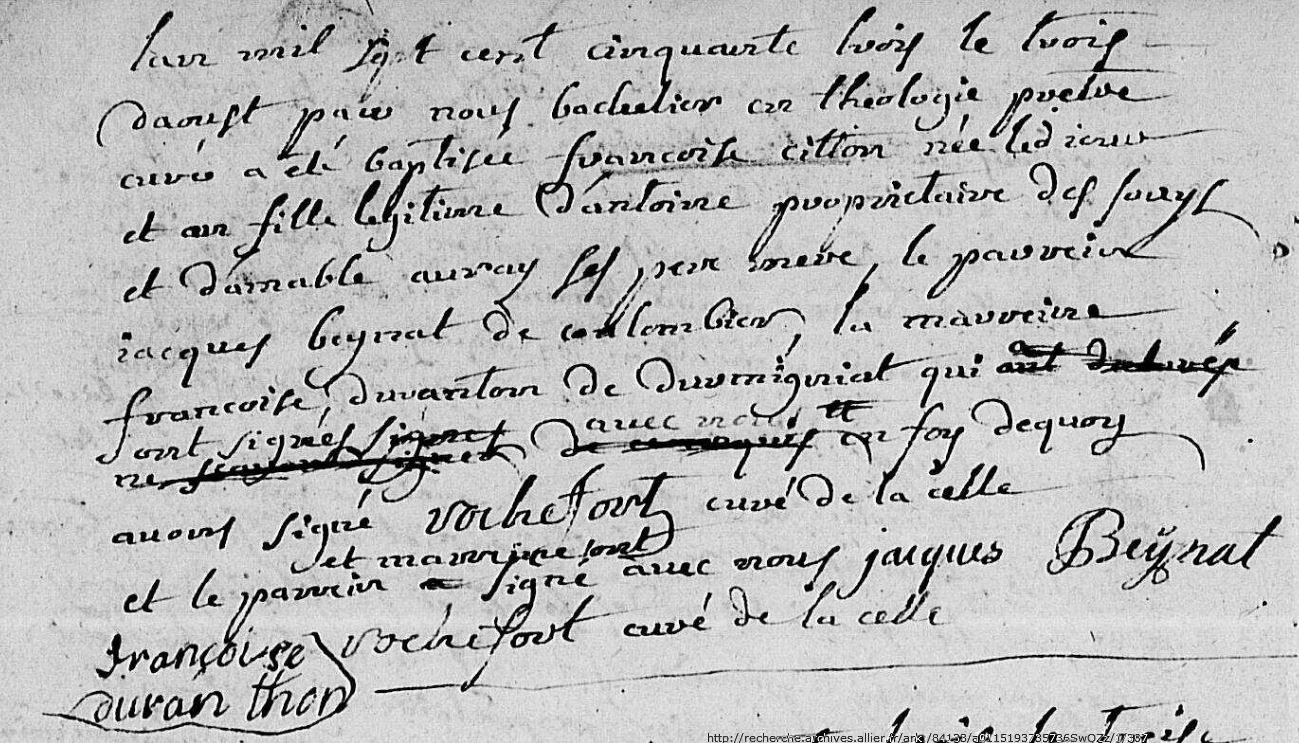 lan mil sept cent cinquante trois le trois
daoust par nous bachelier en theologie pretre
curé a eté baptisée françoise citton née led jour
et an fille legitime d'antoine proprietaire des
et damable auray ses pere mere, le parrein
jacques beynat de coulombier, la marreine
francoise duranton de durmignat qui
ont signés avec nous
de en foy dequoy
avons signé rochefort curé de la celle
et marreine sont
et le parrein signé avec nous jacques Beynat
françoise rochefort curé de la celle
duranthon
http://recherche.archives.allier.fr/ark:/84133/a0115193785736SwOZz/1/387